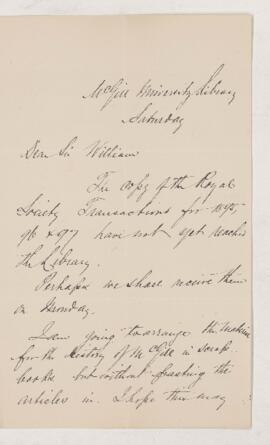 McGill University Library
Saturday
Dear Sir William
The copy of the Royal
Society Transactions for 1895,
96 & 97 have not yet reached
the Library.
Perhaps we shall receive them
on Monday.
I am going to arrange the material
for the history of McGill in scrap
books but without pasting the
articles in. I hope this may